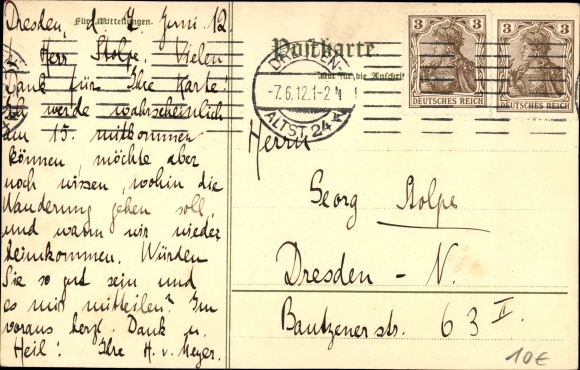 Dresden, d. 7. Juni 12.
Für Mitteilungen.
Herr Stolpe. Vielen
Dank für Ihre Karte!
Ich werde wahrscheinlich
am 15. mitkommen
können, möchte aber
noch wissen, wohin die
Wanderung gehen soll,
und wann wir wieder
heimkommen. Würden
Sie so gut sein und
es mir mitteilen? Im
voraus herzl. Dank u.
Heil! Ihre H. v. Meyer.
Postkarte
Nur für die Anschrift
DRESDEN-
-7.6.12.1-2 N
ALTST. 24 *
3 3
DEUTSCHES REICH
3 3
DEUTSCHES REICH
Herrn
Georg Stolpe
Dresden - N.
Bautzenerstr. 63 II.
10€